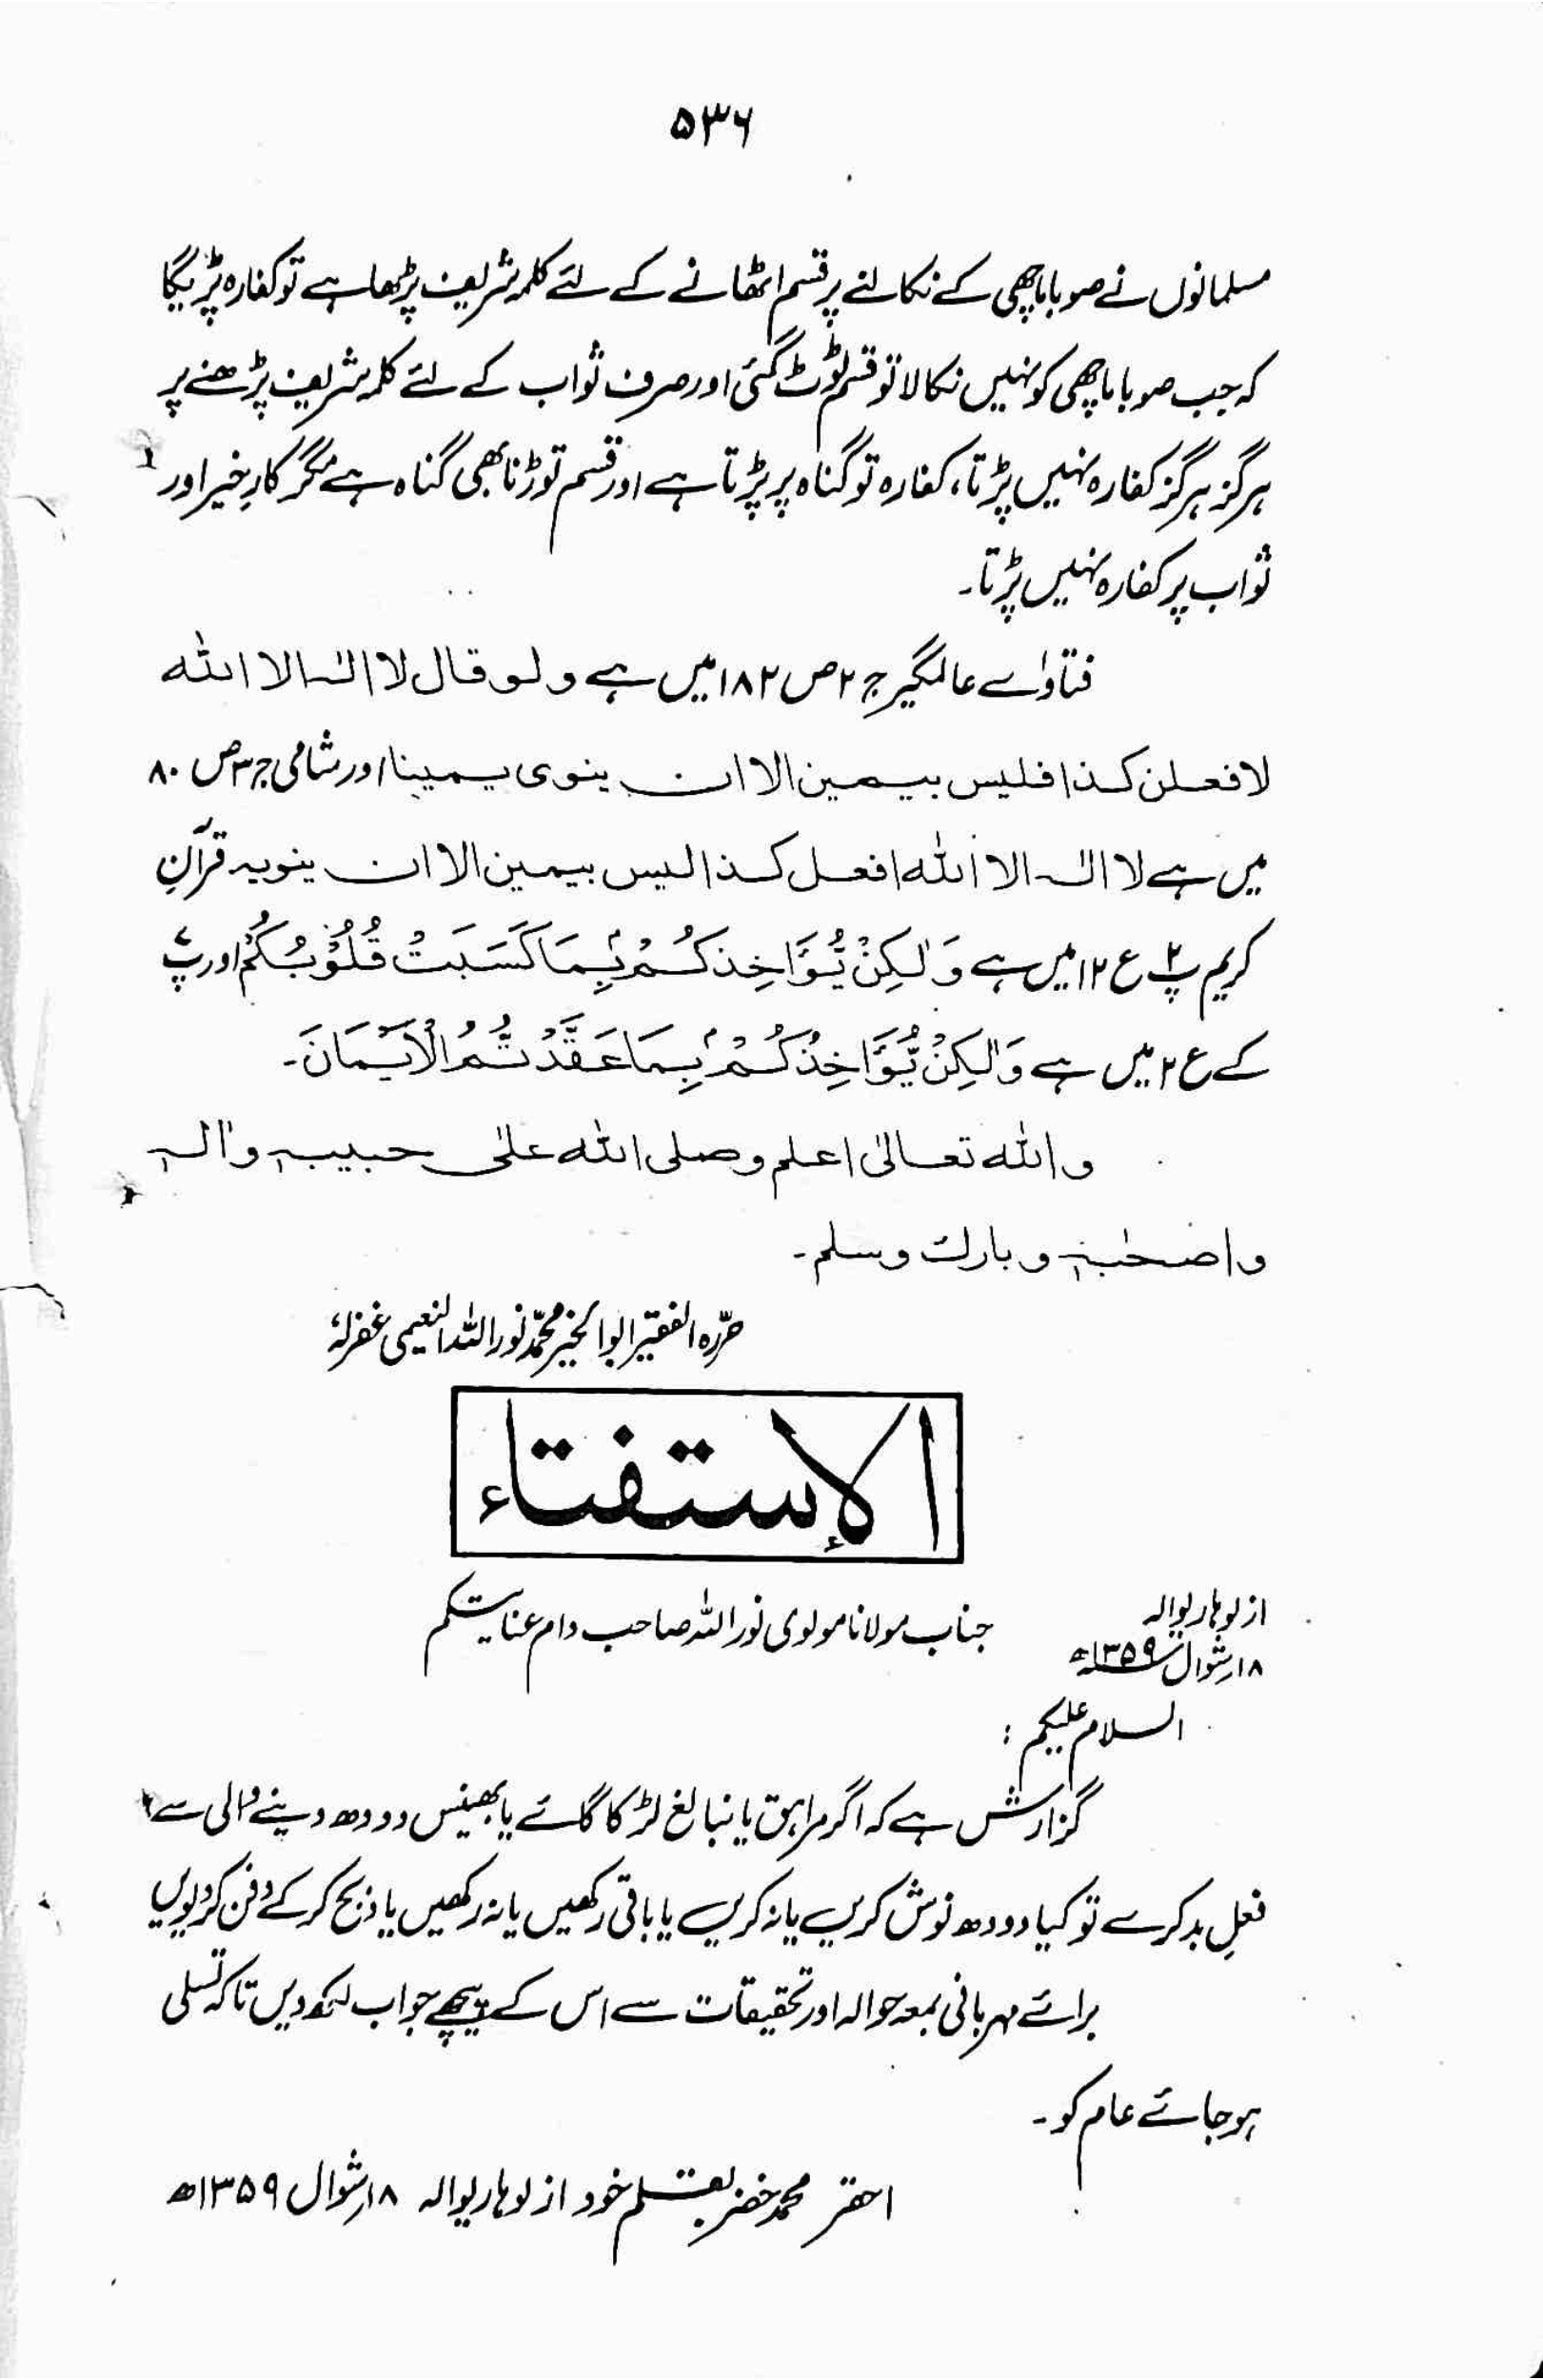 ۵۳۶
مسلمانوں نے صوبا باچھی کے نکالنے پر قسم اٹھانے کے لئے کلمہ شریف پڑھا ہے تو کفارہ پڑیگا
کہ جب صوبا باچھی کو نہیں نکالا تو قسم ٹوٹ گئی اور صرف ثواب کے لئے کلمہ شریف پڑھنے پر
ہرگز ہرگز کفارہ نہیں پڑتا، کفارہ تو گناہ پر پڑتا ہے اور قسم توڑنا بھی گناہ ہے مگر کارِ خیر اور
ثواب پر کفارہ نہیں پڑتا۔
فتاوٰے عالمگیر ج ۲ ص ۱۸۲ میں ہے ولو قال لا الٰہ الا اللہ
لافعلن کذا فلیس بیمین الا ان ینوی یمینا اور شامی ج ۳ ص ۸۰
میں ہے لا الٰہ الا اللہ افعل کذا لیس بیمین الا ان ینویہ قرآنِ
کریم پ۲ ع ۱۲ میں ہے وَلٰکِنْ یُّؤَاخِذُکُمْ بِمَا کَسَبَتْ قُلُوْبُکُمْ اور پ۷
کے ع ۲ میں ہے وَلٰکِنْ یُّؤَاخِذُکُمْ بِمَا عَقَّدْتُّمُ الْاَیْمَانَ۔
واللہ تعالیٰ اعلم وصلی اللہ علیٰ حبیبہٖ واٰلہٖ
واصحٰبہٖ وبارک وسلم۔
حرّرہ الفقیر ابوالخیر محمّد نور اللہ النعیمی غفرلہٗ
الإستفتاء
از لوہاریوالہ
جناب مولانا مولوی نور اللہ صاحب دام عنایتکم
۱۸ شوال ۱۳۵۹ھ
السلام علیکم :
گزارش ہے کہ اگر مراہق یا نبالغ لڑکا گائے یا بھینس دودھ دینے والی سے
فعلِ بد کرے تو کیا دودھ نوش کریں یا نہ کریں یا باقی رکھیں یا نہ رکھیں یا ذبح کر کے دفن کر دیویں
برائے مہربانی بمعہ حوالہ اور تحقیقات سے اس کے پیچھے جواب لکھ دیں تاکہ تسلی
ہو جائے عام کو۔
احقر محمد خضر بقلم خود از لوہاریوالہ ۱۸ شوال ۱۳۵۹ھ